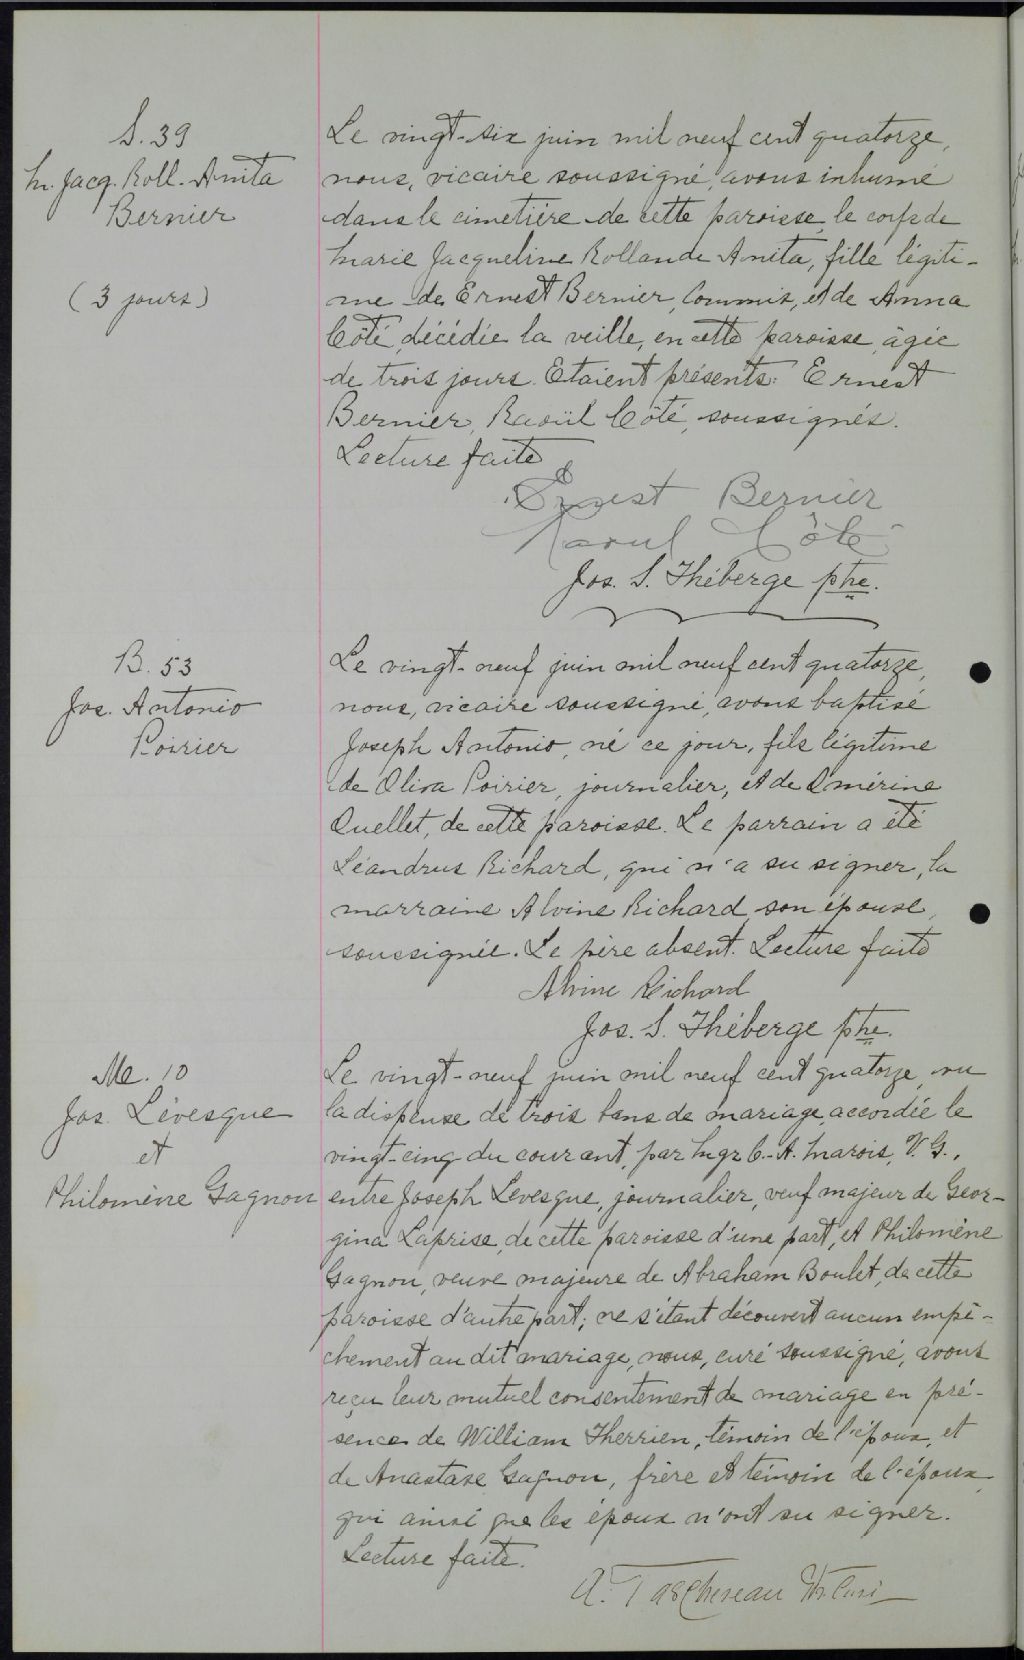 S. 39
M. Jacq. Roll. Anita
Bernier
(3 jours)
Le vingt-six juin mil neuf cent quatorze,
nous, vicaire soussigné, avons inhumé
dans le cimetière de cette paroisse, le corps de
Marie Jacqueline Rollande Anita, fille légiti-
me de Ernest Bernier, Commis, et de Anna
Côté, décédée la veille, en cette paroisse, âgée
de trois jours. Etaient présents: Ernest
Bernier, Raoül Côté, soussignés.
Lecture faite
Ernest Bernier
Raoul Côté
Jos. S. Théberge ptre.
B. 53
Jos. Antonio
Poirier
Le vingt-neuf juin mil neuf cent quatorze,
nous, vicaire soussigné, avons baptisé
Joseph Antonio, né ce jour, fils légitime
de Oliva Poirier, journalier, et de Omérine
Ouellet, de cette paroisse. Le parrain a été
Léandrus Richard, qui n'a su signer, la
marraine Alvine Richard, son épouse,
soussignée. Le père absent. Lecture faite
Alvine Richard
Jos. S. Théberge ptre.
Me. 10
Jos. Lévesque
et
Philomène Gagnon
Le vingt-neuf juin mil neuf cent quatorze, vu
la dispense de trois bans de mariage, accordée le
vingt-cinq du courant, par Mgr C.-A. Marois, V. G.,
entre Joseph Levesque, journalier, veuf majeur de Geor-
gina Laprise, de cette paroisse d'une part, et Philomène
Gagnon, veuve majeure de Abraham Boulet, de cette
paroisse d'autre part; ne s'étant découvert aucun empê-
chement au dit mariage, nous, curé soussigné, avons
reçu leur mutuel consentement de mariage en pré-
sence de William Therrien, témoin de l'époux, et
de Anastase Gagnon, frère et témoin de l'épouse
qui ainsi que les époux n'ont su signer.
Lecture faite.
A. Taschereau Ptr Curé